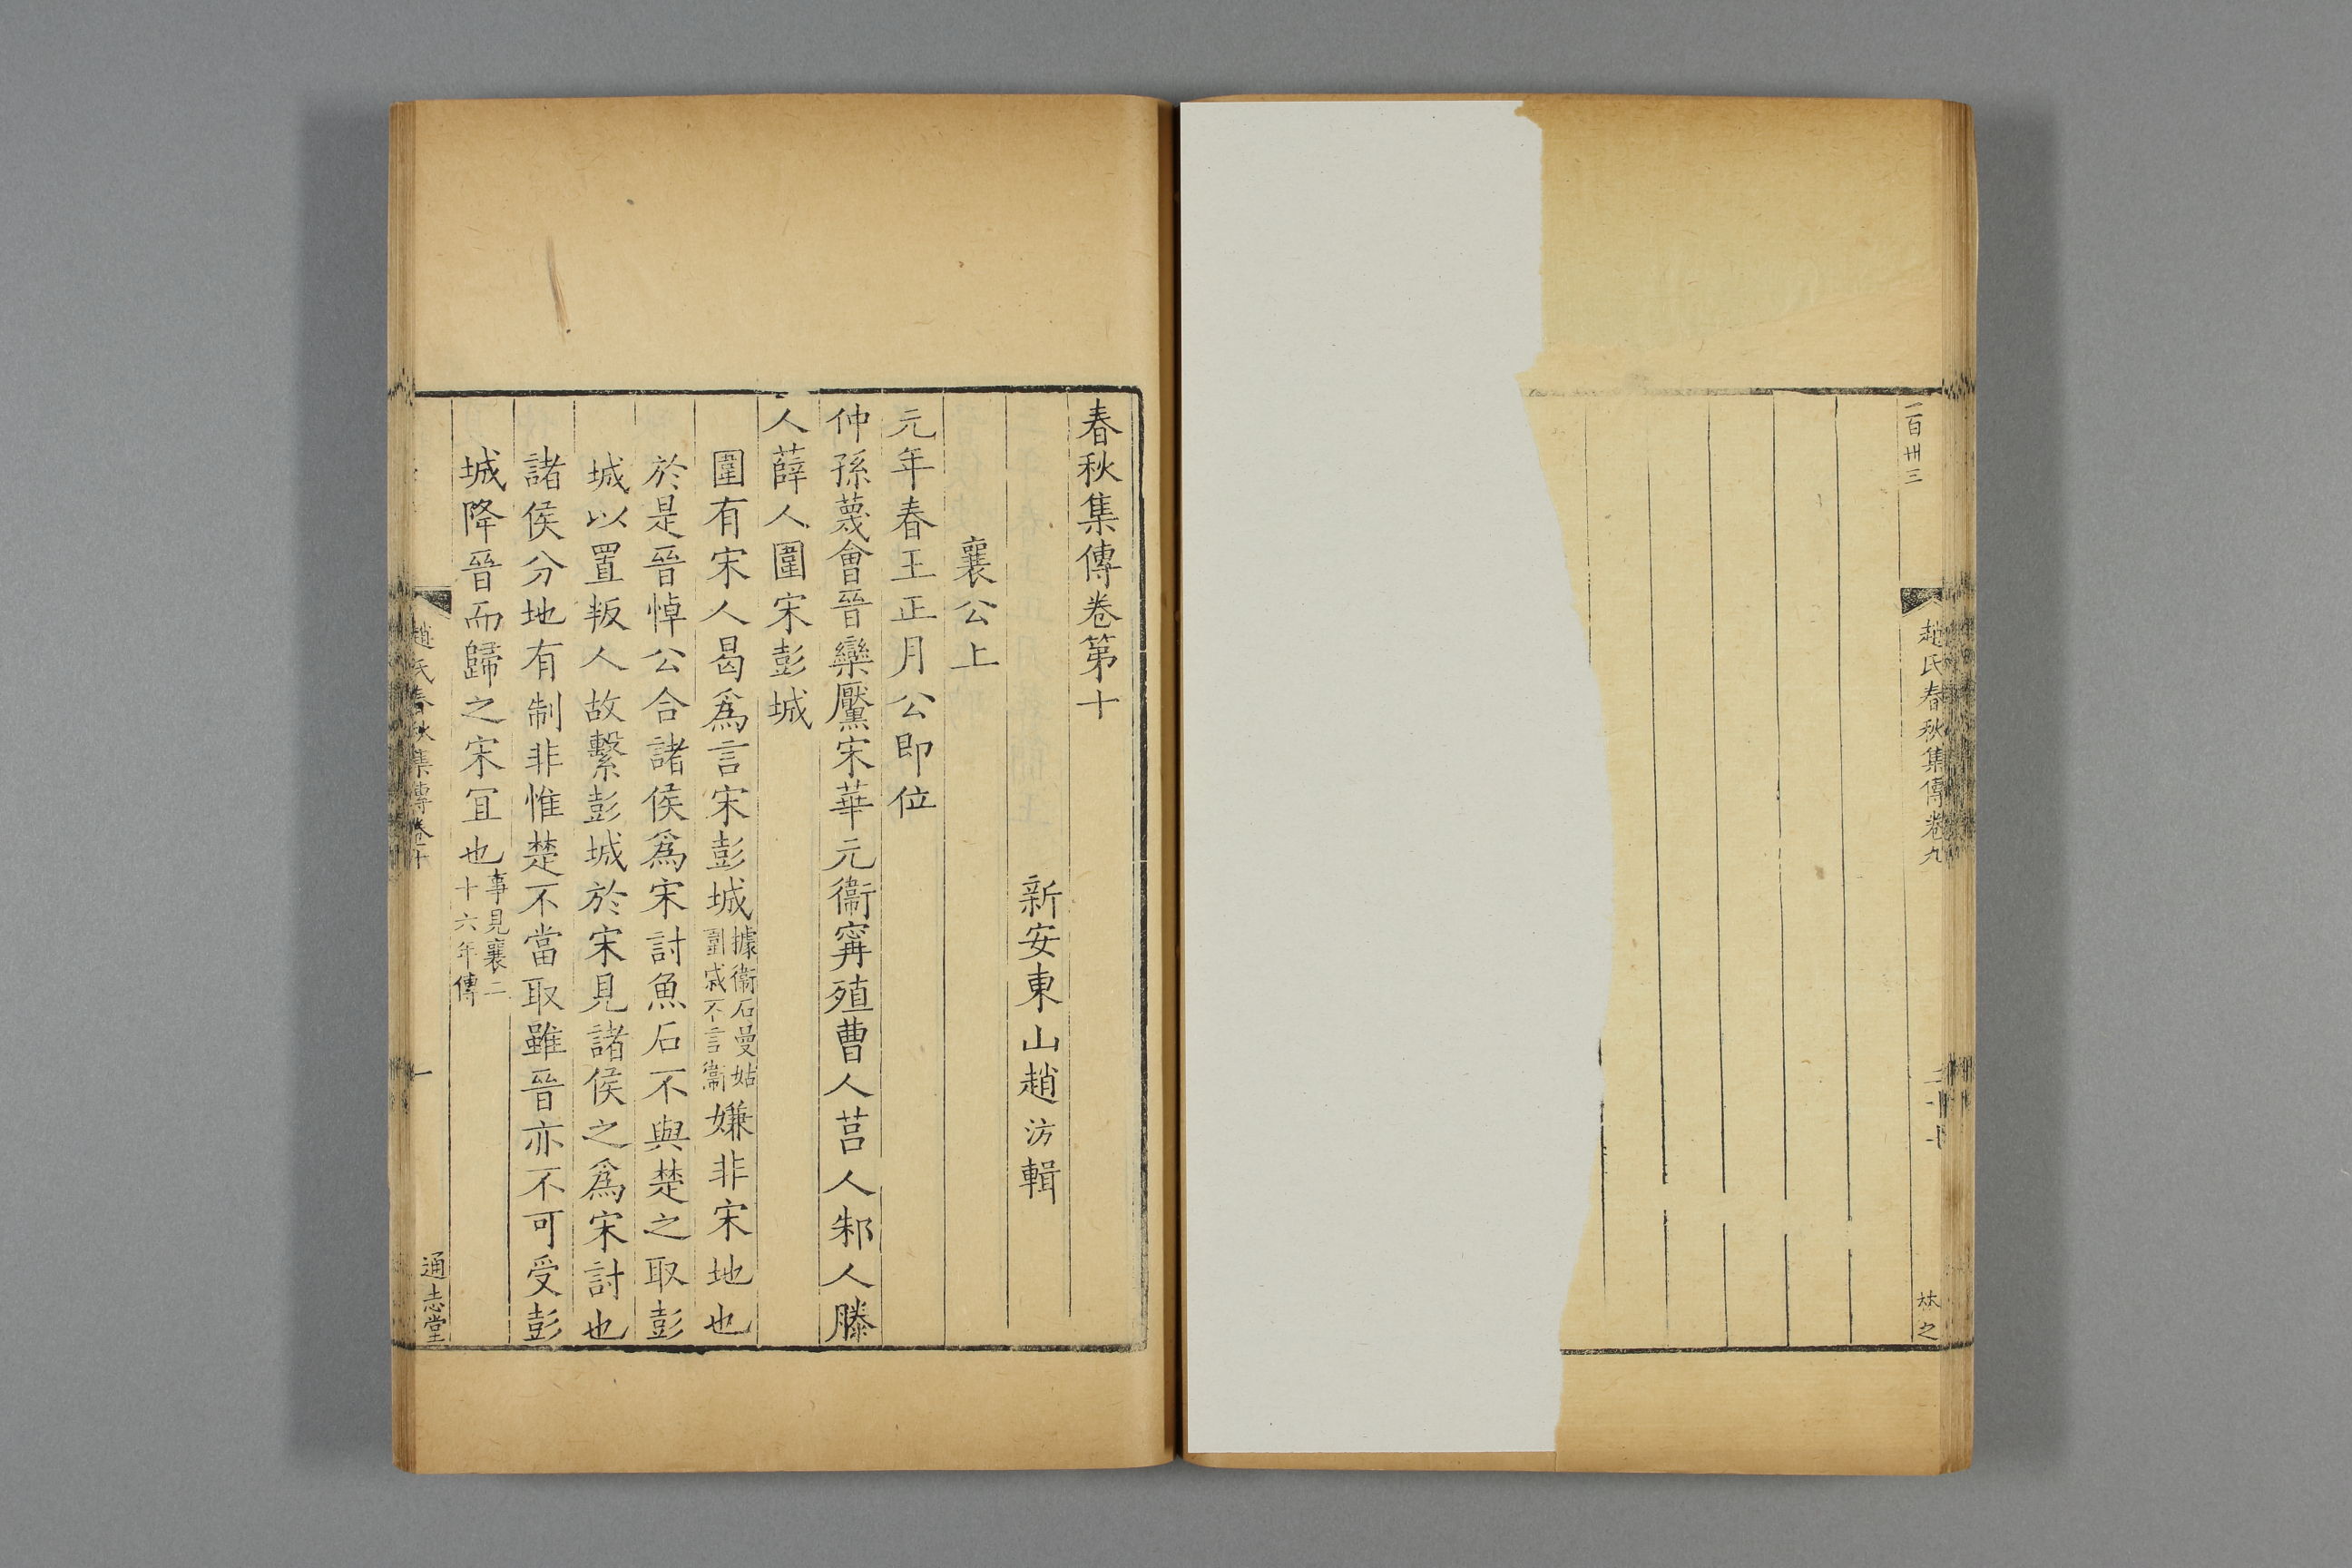 一百卅三
趙氏春秋集傳卷九
二十七
林之
春秋集傳卷第十
新安東山趙汸輯
襄公上
元年春王正月公即位
仲孫蔑會晉欒黶宋華元衞甯殖曹人莒人邾人滕
人薛人圍宋彭城
圍有宋人曷爲言宋彭城據衞石曼姑圍戚不言衞嫌非宋地也
於是晉悼公合諸侯爲宋討魚石不與楚之取彭
城以置叛人故繫彭城於宋見諸侯之爲宋討也
諸侯分地有制非惟楚不當取雖晉亦不可受彭
城降晉而歸之宋冝也事見襄二十六年傳
趙氏春秋集傳卷十
一
通志堂